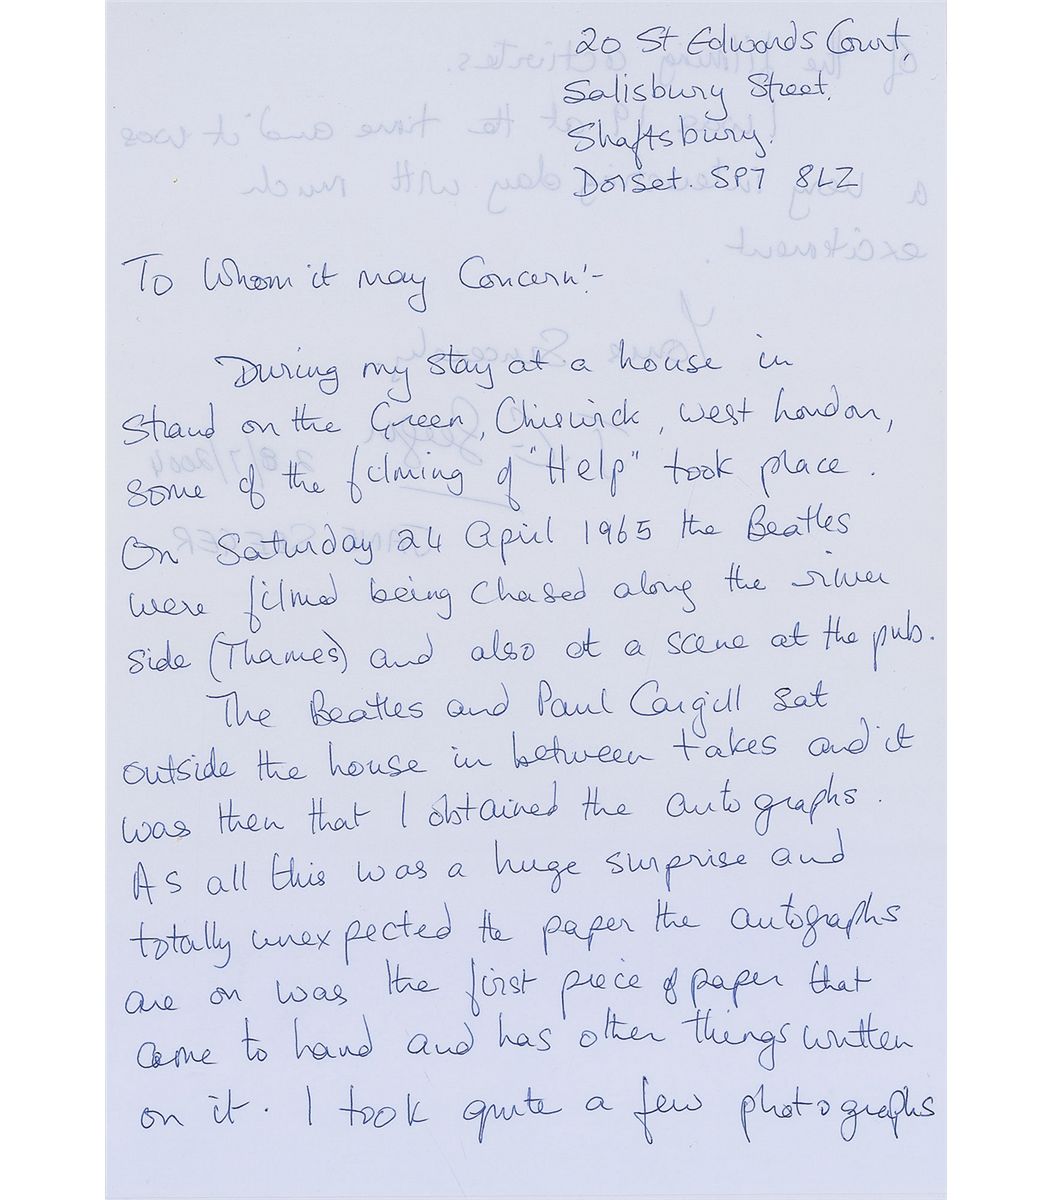 20 St Edwards Court,
Salisbury Street.
Shaftsbury.
Dorset. SP7 8LZ
To Whom it may Concern:-
During my stay at a house in
Strand on the Green, Chiswick, west London,
some of the filming of "Help" took place.
On Saturday 24 April 1965 the Beatles
were filmed being chased along the river
side (Thames) and also at a scene at the pub.
The Beatles and Paul Cargill sat
outside the house in between takes and it
was then that I obtained the autographs.
As all this was a huge surprise and
totally unexpected the paper the autographs
are on was the first piece of paper that
came to hand and has other things written
on it. I took quite a few photographs